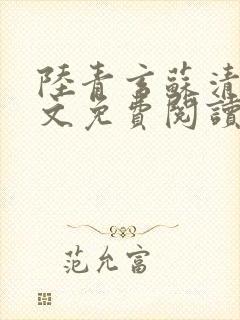 陸青言蘇清
文免費閱讀
范允富